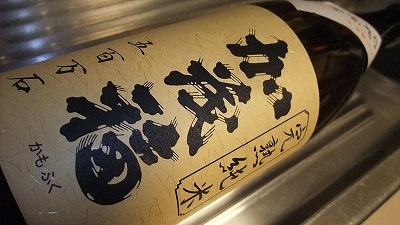 完熟純米
加茂福
かもふく
五百万石